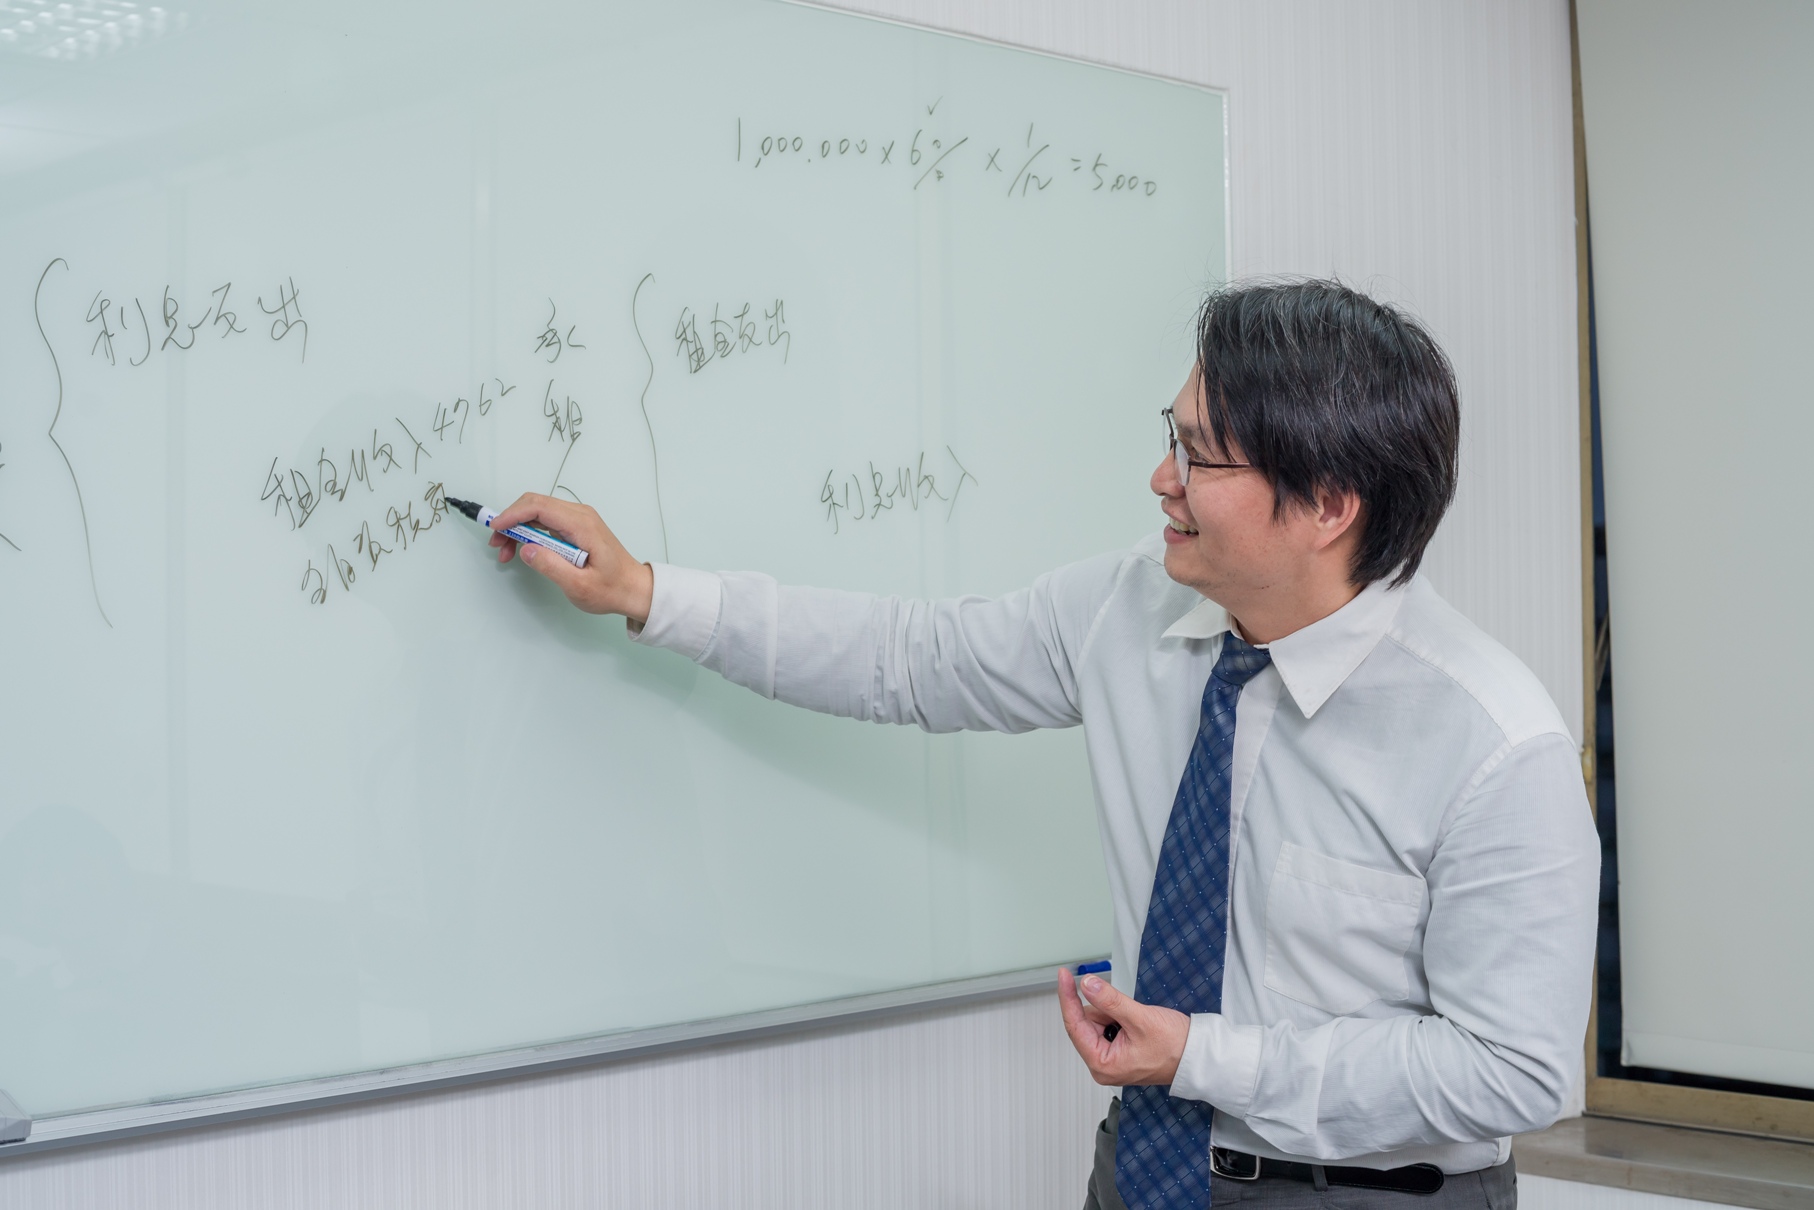 1,000,000 × 6% × 1/12 = 5,000
利息支出
租金收入 4762
承租人
租金支出
利息收入